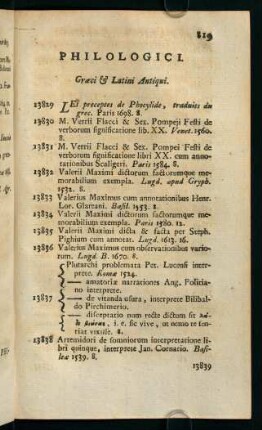 819
PHILOLOGICI.
Græci & Latini Antiqui.
13829 LEs preceptes de Phocylide, traduites du
grec. Paris 1698. 8.
13830 M. Verrii Flacci & Sex. Pompeji Festi de
verborum significatione lib. XX. Venet. 1560.
8.
13831 M. Verrii Flacci & Sex. Pompeii Festi de
verborum significatione libri XX. cum anno-
tationibus Scaligeri. Paris 1584. 8.
13832 Valerii Maximi dictorum factorumque me-
morabilium exempla. Lugd. apud Gryph.
1532. 8.
13833 Valerius Maximus cum annotationibus Henr.
Lor. Glareani. Basil. 1553. 8.
13834 Valerii Maximi dictorum factorumque me-
morabilium exempla. Paris 1580. 12.
13835 Valerii Maximi dicta & facta per Steph.
Pighium cum annotat. Lugd. 1613. 16.
13836 Valerius Maximus cum observationibus vario-
rum. Lugd. B. 1670. 8.
Plutarchi problemata Pet. Lucensi inter-
prete. Romæ 1524.
—— amatoriæ narrationes Ang. Politia-
no interprete.
13837 —— de vitanda usura, interprete Bilibal-
do Pirchimerio.
—— disceptatio num recte dictum sit
i. e. sic vive, ut nemo te sen-
tiat vixisse. 8.
13838 Artemidori de somniorum interpretatione li-
bri quinque, interprete Jan. Cornario. Basi-
leæ 1539. 8.
13839